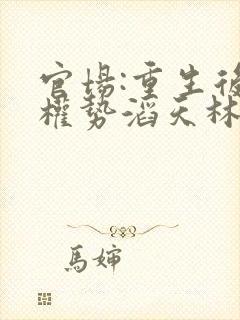 官場:重生後
權勢滔天林
馬嬸